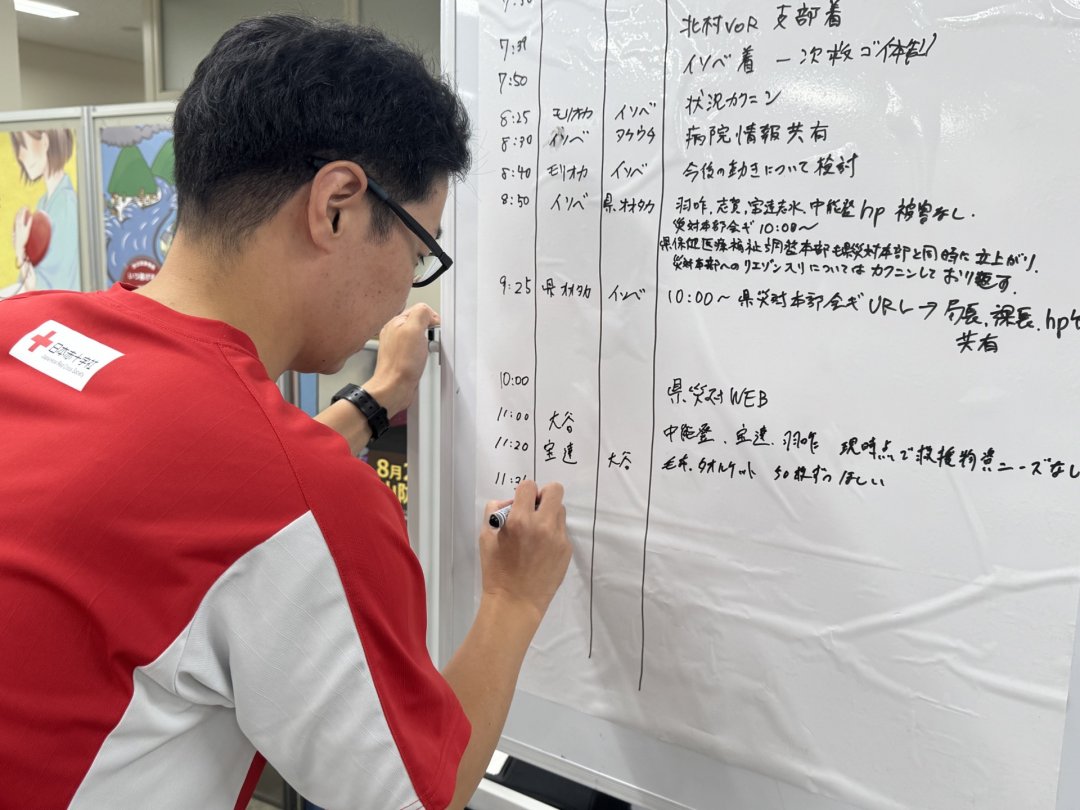 北村VOR 支部着
7:39 イソベ着 一次救ゴ体制
7:50
8:25 モリオカ イソベ 状況カクニン
8:30 イソベ タケウチ 病院情報共有
8:40 モリオカ イソベ 今後の動きについて検討
8:50 イソベ 県オオタカ 羽咋、志賀、宝達志水、中能登hp 被害なし.
災対本部会ギ10:00〜
県保健医療福祉調整本部も県災対本部と同時に立上がり.
災対本部へのリエゾン入りについてはカクニンしており返す.
9:25 県オオタカ イソベ 10:00〜県災対本部会ギURL→局長、課長、hp
共有
10:00 県災対WEB
11:00 大谷 中能登、宝達、羽咋 現時点で救援物資ニーズなし
11:20 宝達 大谷 毛布、タオルケット 50枚ずつほしい
日本赤十字社
Japanese Red Cross Society
8月